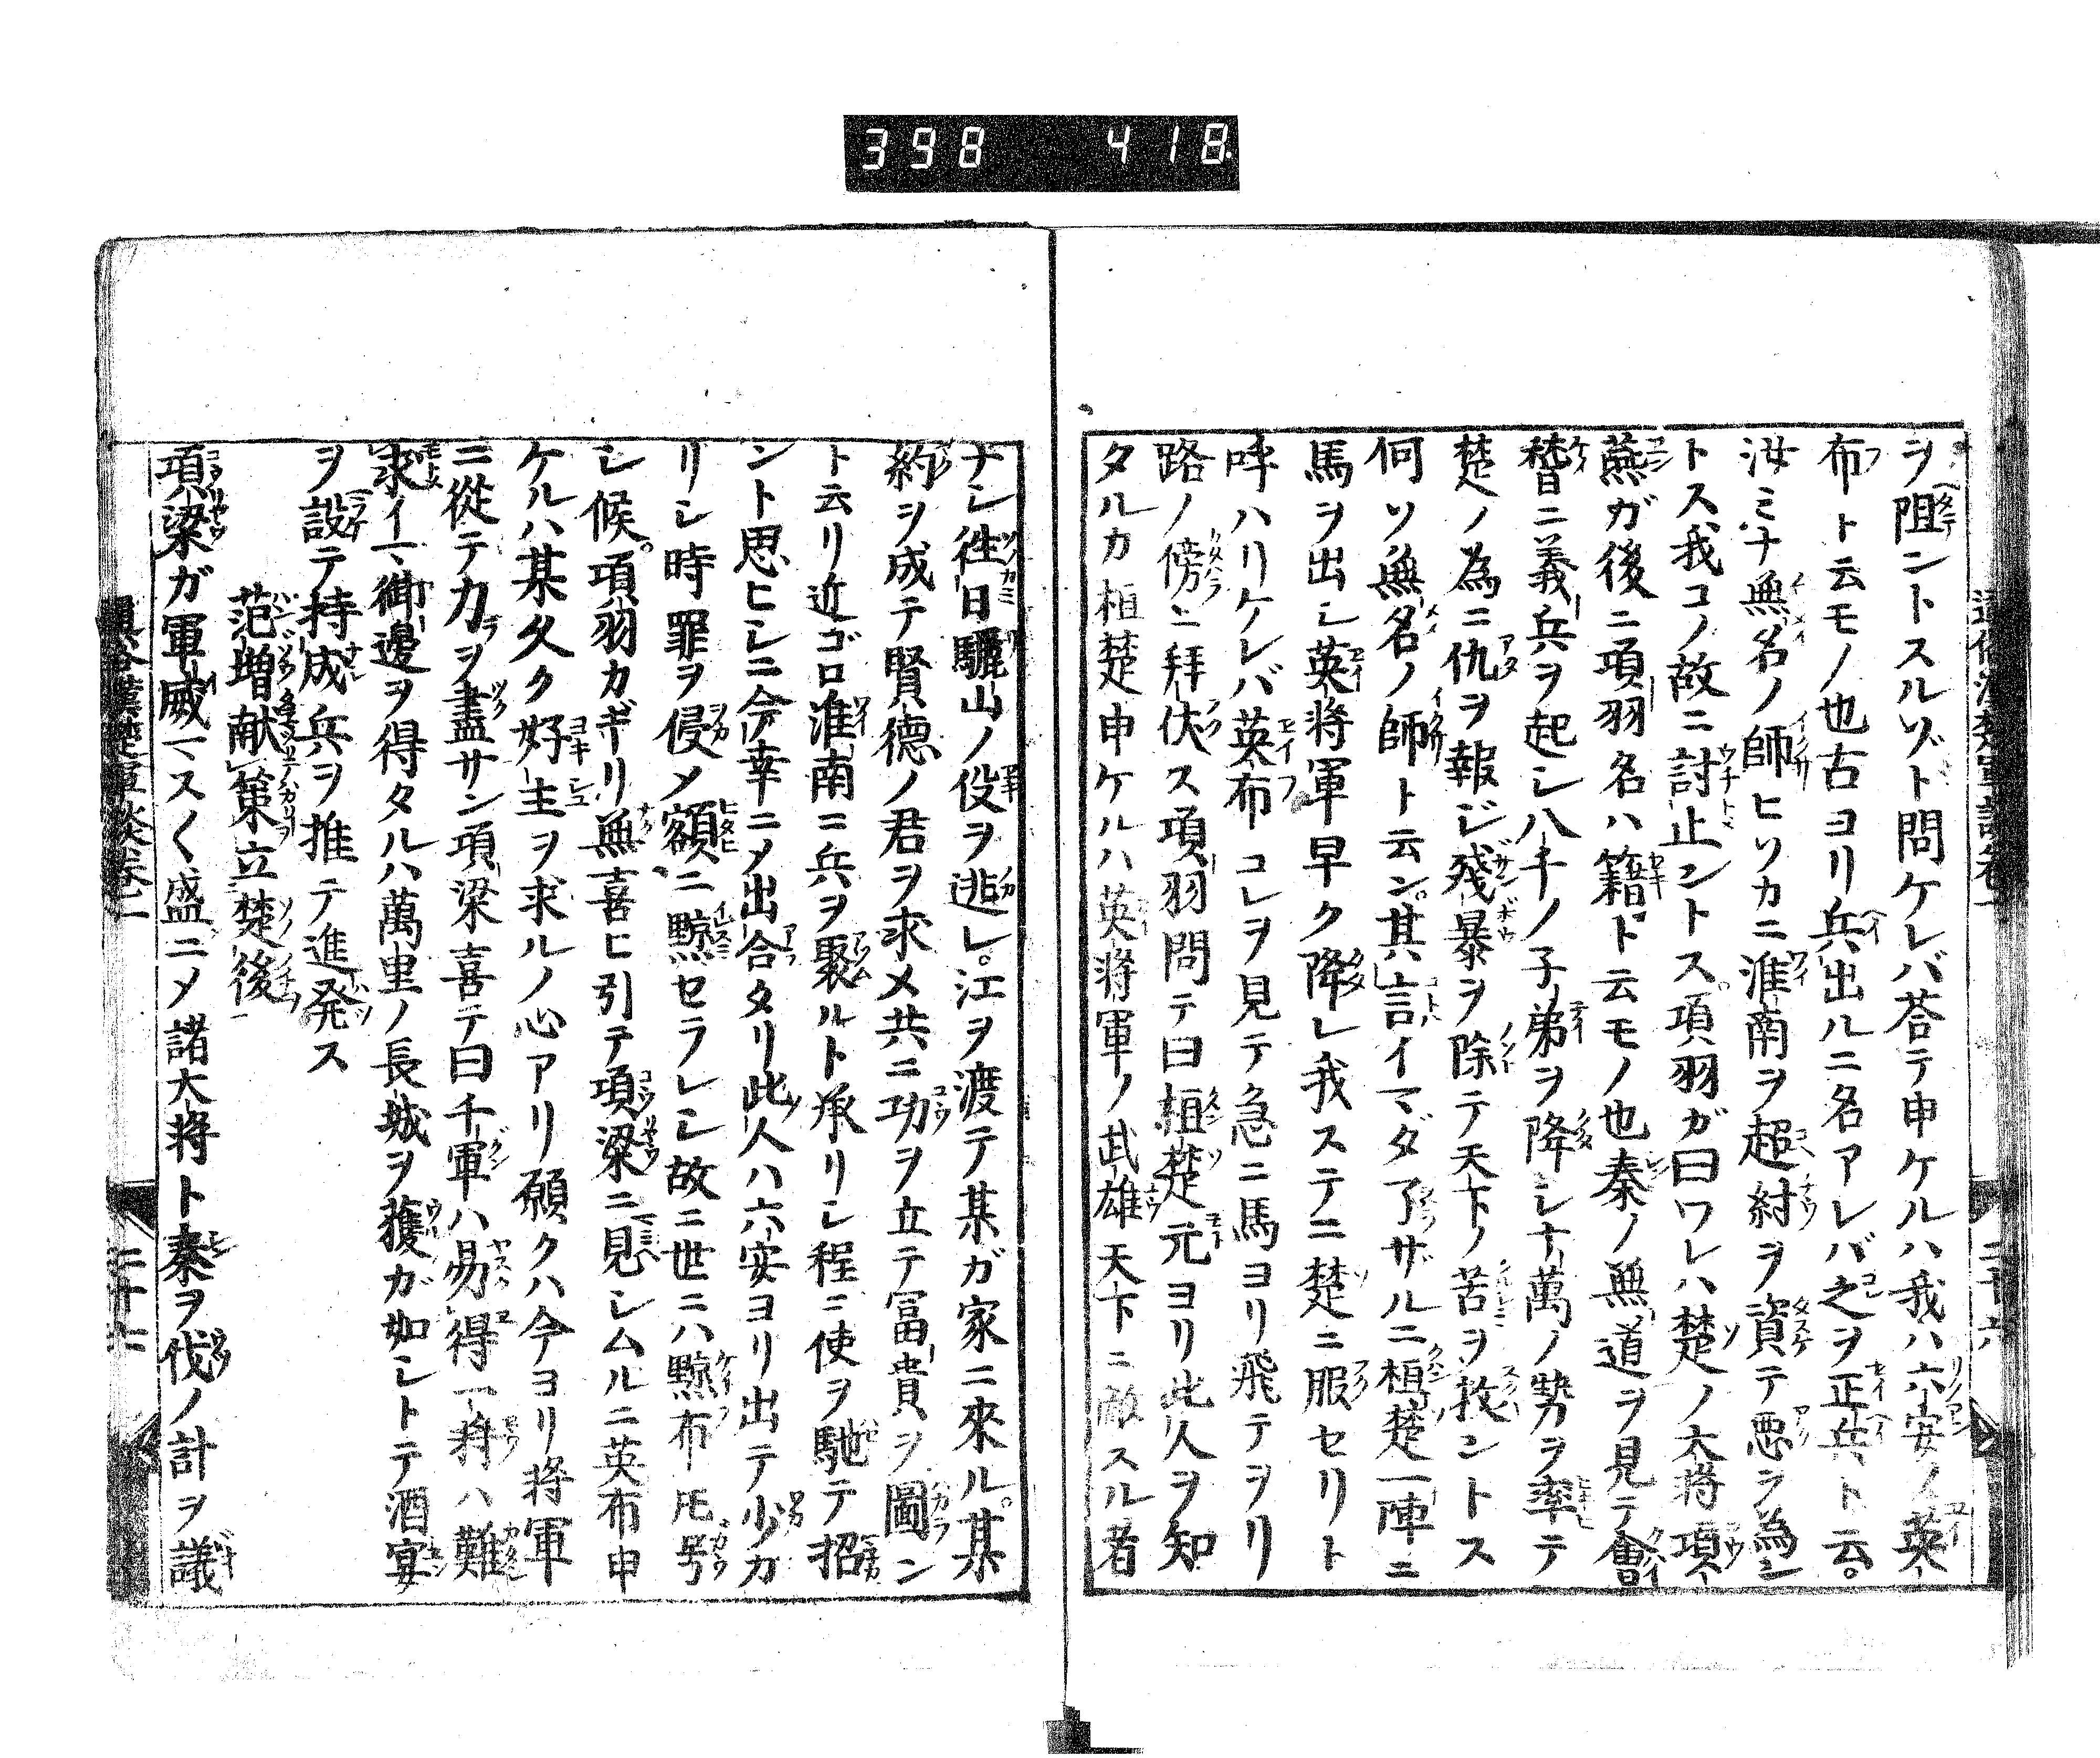 398 418
ヲ阻ントスルゾト問ケレバ荅テ申ケルハ我ハ六安ノ英
布ト云モノ也古ヨリ兵出ルニ名アレバ之ヲ正兵ト云。
汝ミナ無名ノ師ヒソカニ淮南ヲ超紂ヲ資テ悪ヲ為シ
トス我コノ故ニ討止ントス項羽ガ曰ワレハ楚ノ大将項
燕ガ後ニ項羽名ハ籍ト云モノ也秦ノ無道ヲ見テ會
稽ニ義兵ヲ起シ八千ノ子弟ヲ降シ十萬ノ勢ヲ率テ
楚ノ為ニ仇ヲ報ジ残暴ヲ除テ天下ノ苦ヲ救ントス
何ソ無名ノ師ト云ン其言イマダ了ザルニ桓楚一陣ニ
馬ヲ出シ英将軍早ク降レ我ステニ楚ニ服セリト
呼ハリケレバ英布コレヲ見テ急ニ馬ヨリ飛テヲリ
路ノ傍ニ拜伏ス項羽問テ曰桓楚元ヨリ此人ヲ知
タルカ桓楚申ケルハ英将軍ノ武雄天下ニ敵スル者
ナシ徃日驪山ノ役ヲ逃レ。江ヲ渡テ某ガ家ニ來ル。某
約ヲ成テ賢德ノ君ヲ求メ共ニ功ヲ立テ冨貴ヲ圖ン
ト云リ近ゴロ淮南ニ兵ヲ聚ルト承リシ程ニ使ヲ馳テ招
ント思ヒシニ今幸ニメ出合タリ此人ハ六安ヨリ出テ少カ
リシ時罪ヲ侵メ額ニ黥セラレシ故ニ世ニハ黥布ト号
シ候。項羽カギリ無喜ヒ引テ項梁ニ見シムルニ英布申
ケルハ某久ク好主ヲ求ルノ心アリ願クハ今ヨリ将軍
ニ從テ力ヲ盡サン項梁喜テ曰千軍ハ易得一将ハ難
求イマ御邊ヲ得タルハ萬里ノ長城ヲ獲ガ如シトテ酒宴
ヲ設テ持成兵ヲ推テ進発ス
范増献策立楚後
項梁ガ軍威マスく盛ニメ諸大将ト秦ヲ伐ノ計ヲ議